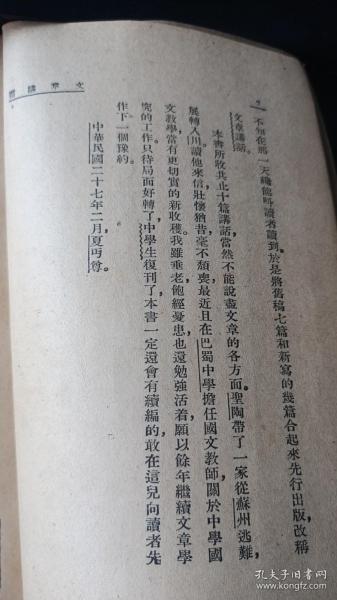 不知在那一天纔能與讀者讀到。於是將舊稿七篇和新寫的幾篇合起來先行出版，改稱
文章講話。
本書所收共止十篇講話當然不能說盡文章的各方面。聖陶帶了一家從蘇州逃難，
展轉入川，讀他來信，壯懷猶昔，毫不頹喪，最近且在巴蜀中學擔任國文教師，關於中學國
文教學當有更切實的新收穫。我雖垂老，飽經憂患，也還勉強活着，願以餘年繼續文章學
究的工作。只待局面好轉了，中學生復刊了，本書一定還會有續編的，敢在這兒向讀者先
作下一個豫約。
中華民國二十七年二月，夏丏尊。
文章講話
孔夫子旧书网